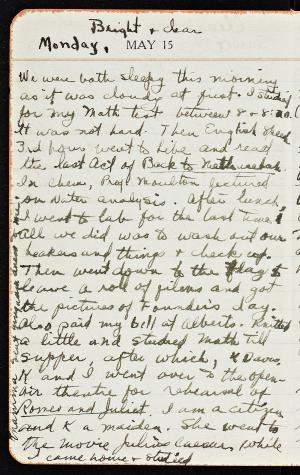 Bright & clear
Monday, MAY 15
We were both sleepy this morning
as it was cloudy at first. I studied
for my Math test between 8 - 8:20.
It was not hard. Then English
3rd hour went to Libe and read
the last Act of Back to Methuselah.
In Chem, Prof. Moulton lectured
on water analysis. After lunch,
I went to lab for the last time.
All we did was to wash out our
beakers and things & check up.
Then went down to the to
leave a roll of films and got
the pictures of Founder's day.
Also paid my bill at Alberts. Knitted
a little and studied Math till
supper, after which,
K and I went over to the open-
air theatre for rehearsal of
Romeo and Juliet. I am a citizen
and K a maiden. She went to
the movie Julius Caesar, while
I came home &